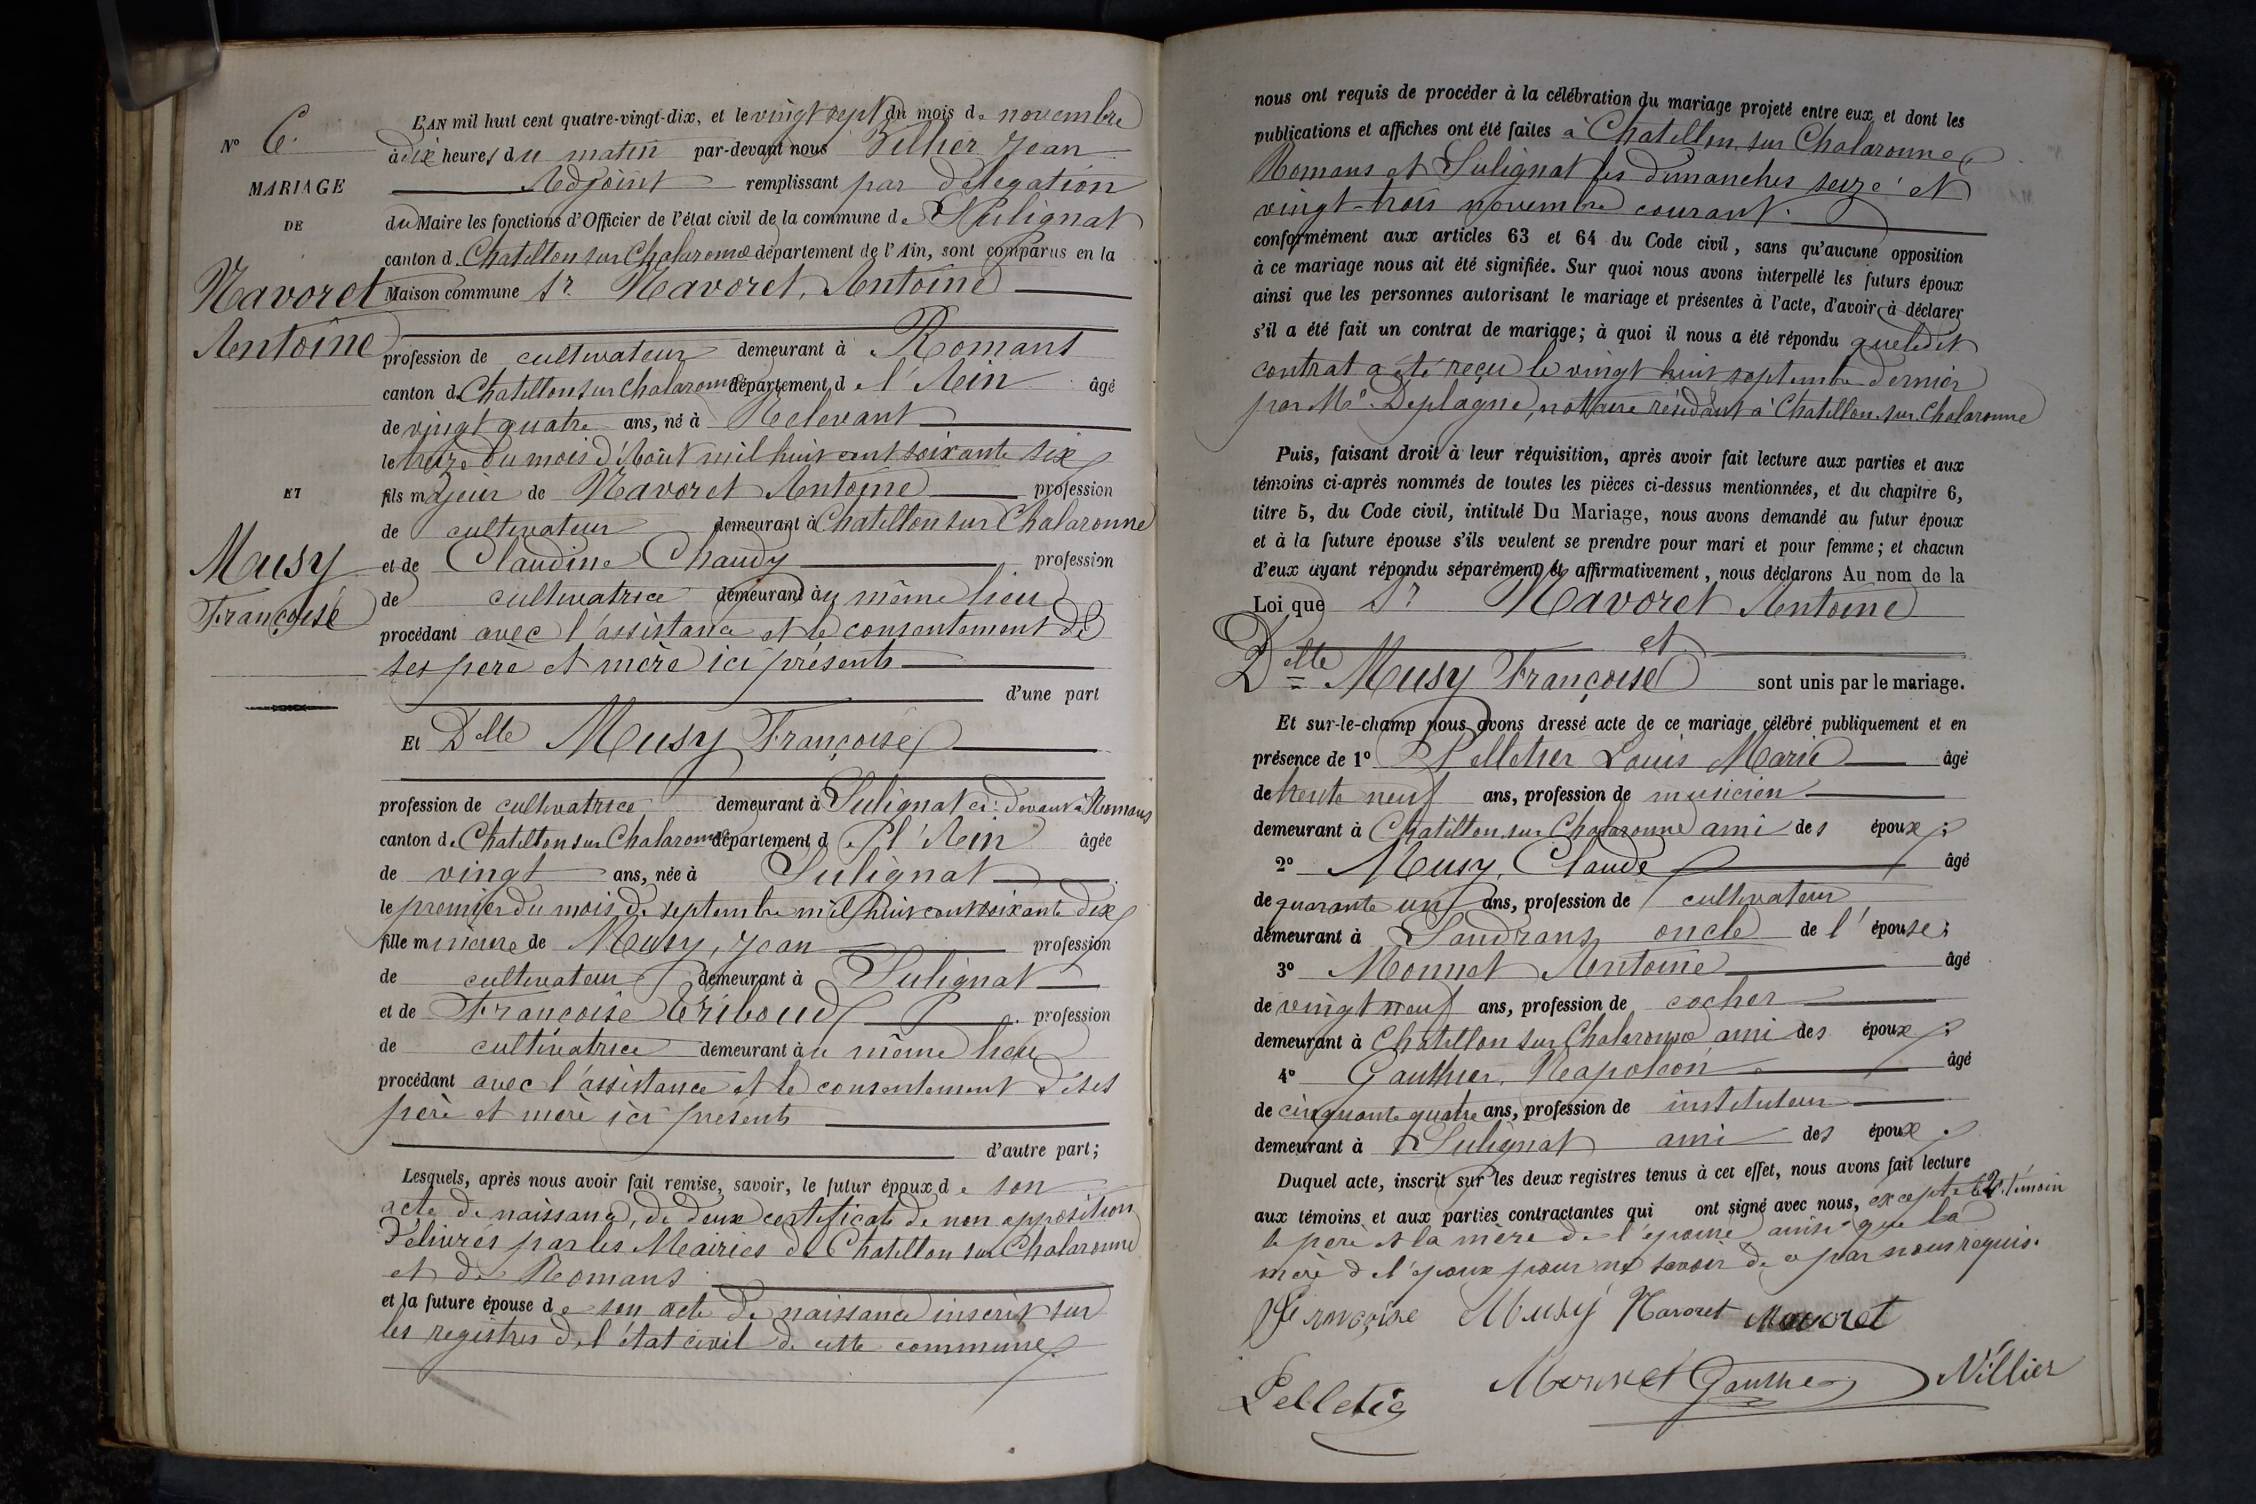 N° 6.
MARIAGE
DE
Navoret
Antoine
ET
Musy
Françoise
L'AN mil huit cent quatre-vingt-dix, et le vingt sept du mois de novembre
à dix heures du matin par-devant nous Villier Jean
Adjoint remplissant par délégation
du Maire les fonctions d'Officier de l'état civil de la commune de Sulignat
canton d Chatillon sur Chalaronne département de l'Ain, sont comparus en la
Maison commune Sr. Navoret, Antoine
profession de cultivateur demeurant à Romans
canton de Chatillon sur Chalaronne département de l'Ain âgé
de vingt quatre ans, né à Relevant
le treize du mois d'Août mil huit cent soixante six
fils majeur de Navoret Antoine profession
de cultivateur demeurant à Chatillon sur Chalaronne
et de Claudine Chaudy profession
de cultivatrice demeurant au même lieu
procédant avec l'assistance et le consentement de
ses père et mère ici présents
d'une part
Et Delle Musy Françoise
profession de cultivatrice demeurant à Sulignat ci-devant à Romans
canton de Chatillon sur Chalaronne département de l'Ain âgée
de vingt ans, née à Sulignat
le premier du mois de septembre mil huit cent soixante dix
fille mineure de Musy, Jean profession
de cultivateur demeurant à Sulignat
et de Françoise Triboud profession
de cultivatrice demeurant au même lieu
procédant avec l'assistance et le consentement de ses
père et mère ici présents
d'autre part;
Lesquels, après nous avoir fait remise, savoir, le futur époux de son
acte de naissance, de deux certificats de non opposition
délivrés par les Mairies de Chatillon sur Chalaronne
et de Romans
et la future épouse de son acte de naissance inscrit sur
les registres de l'état civil de cette commune.
nous ont requis de procéder à la célébration du mariage projeté entre eux et dont les
publications et affiches ont été faites à Chatillon sur Chalaronne,
Romans et Sulignat les dimanches seize et
vingt-trois novembre courant.
conformément aux articles 63 et 64 du Code civil, sans qu'aucune opposition
à ce mariage nous ait été signifiée. Sur quoi nous avons interpellé les futurs époux
ainsi que les personnes autorisant le mariage et présentes à l'acte, d'avoir à déclarer
s'il a été fait un contrat de mariage; à quoi il nous a été répondu que ledit
contrat a été reçu le vingt huit septembre dernier
par Me Deplagne, notaire résidant à Chatillon sur Chalaronne
Puis, faisant droit à leur réquisition, après avoir fait lecture aux parties et aux
témoins ci-après nommés de toutes les pièces ci-dessus mentionnées, et du chapitre 6,
titre 5, du Code civil, intitulé Du Mariage, nous avons demandé au futur époux
et à la future épouse s'ils veulent se prendre pour mari et pour femme; et chacun
d'eux ayant répondu séparément et affirmativement, nous déclarons Au nom de la
Loi que Sr Navoret Antoine
et
Delle Musy Françoise sont unis par le mariage.
Et sur-le-champ nous avons dressé acte de ce mariage célébré publiquement et en
présence de 1° Pelletier Louis Marie âgé
de trente neuf ans, profession de musicien
demeurant à Chatillon sur Chalaronne ami des époux;
2° Musy, Claude âgé
de quarante un ans, profession de cultivateur
demeurant à Sandrans oncle de l'épouse;
3° Monnet Antoine âgé
de vingt neuf ans, profession de cocher
demeurant à Chatillon sur Chalaronne ami des époux;
4° Gauthier, Napoléon âgé
de cinquante quatre ans, profession de instituteur
demeurant à Sulignat ami des époux.
Duquel acte, inscrit sur les deux registres tenus à cet effet, nous avons fait lecture
aux témoins et aux parties contractantes qui ont signé avec nous, excepté le 2e témoin
le père et la mère de l'épouse ainsi que la
mère de l'époux pour ne savoir de ce par nous requis.
Françoise Musy Navoret Navoret
Pelletier Monnet Gauthier Villier